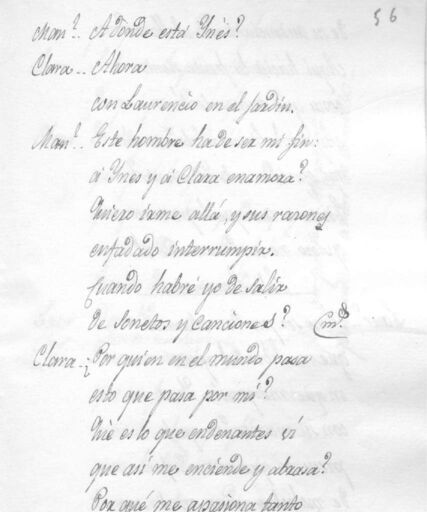 56
Man.l.. A dónde está Ynés?
Clara.. Ahora
con Laurencio en el jardin.
Man.l.. Este hombre ha de ser mi fin:
á Ynes y á Clara enamora?
Quiero irme allá, y sus razones
enfadado interrumpir.
Cuando habré yo de salir
de sonetos y canciones?
Clara.. Por quien en el mundo pasa
esto que pasa por mi?
Qué es lo que endenantes ví
que así me enciende y abrasa?
Por qué me apasiona tanto